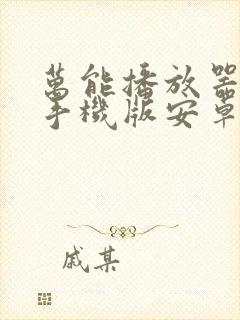 萬能播放器
手機版安卓
戚某